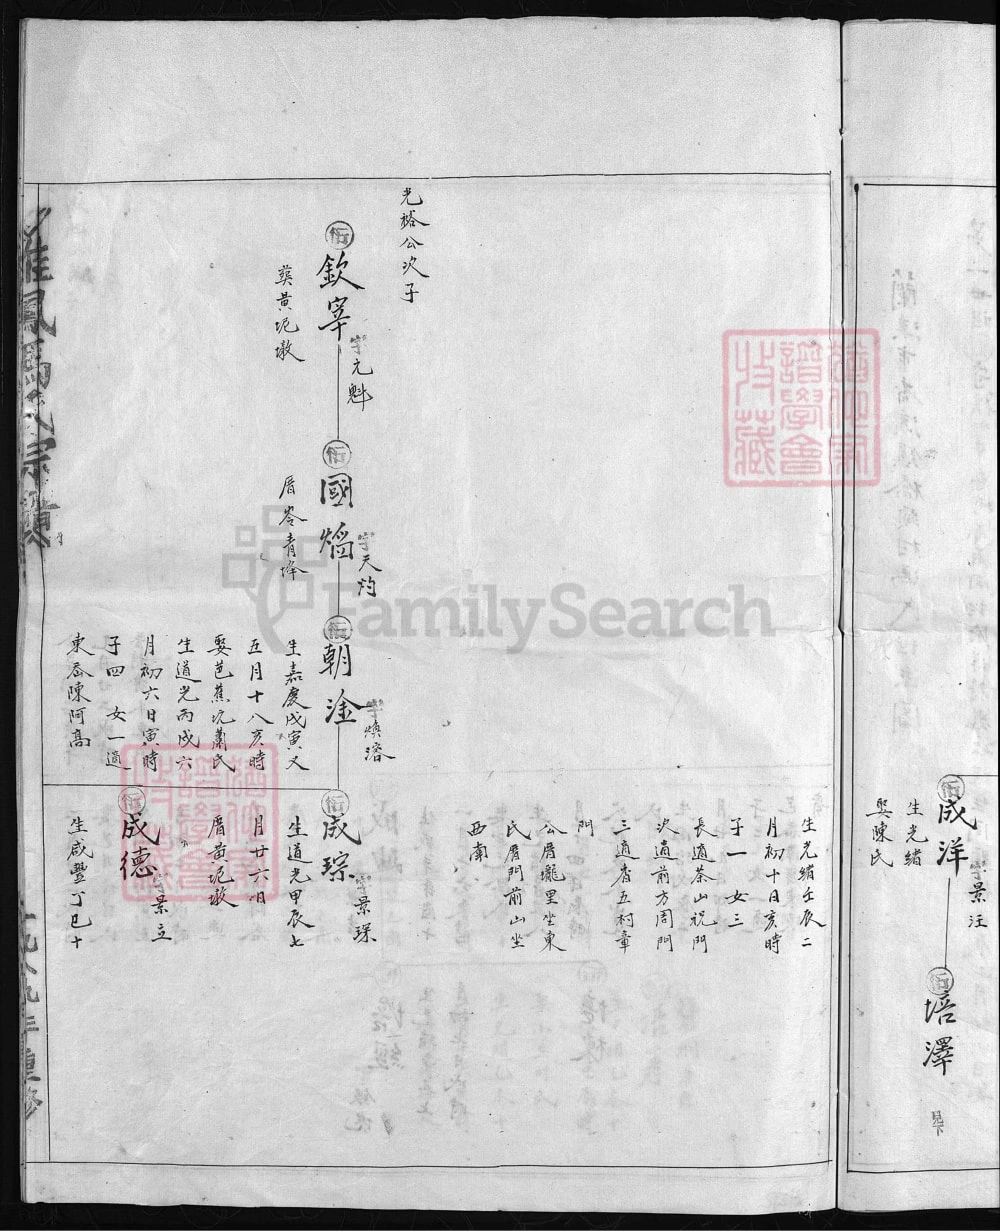 衍 成洋
字景汪
生光緒
娶陳氏
衍 培澤
見下
生光緒壬辰二
月初十日亥時
子一 女三
長適茶山祝門
次適前方周門
三適唐五村章
門
公厝壠里坐東
氏厝門前山坐
西南
光裕公次子
衍 欽宰
字元魁
葬黃坭墩
衍 國熖
字天灼
厝岺青垾
衍 朝淦
字煥溶
生嘉慶戊寅又
五月十八亥時
娶芭蕉坑蕭氏
生道光丙戌六
月初六日寅時
子四 女一適
東岙陳阿高
衍 成琮
字景琛
生道光甲辰七
月廿六日
厝黃坭墩
衍 成德
字景立
生咸豐丁巳十
鳳馮氏宗譜
一九八九年重修
譜學會
收藏
FamilySearch